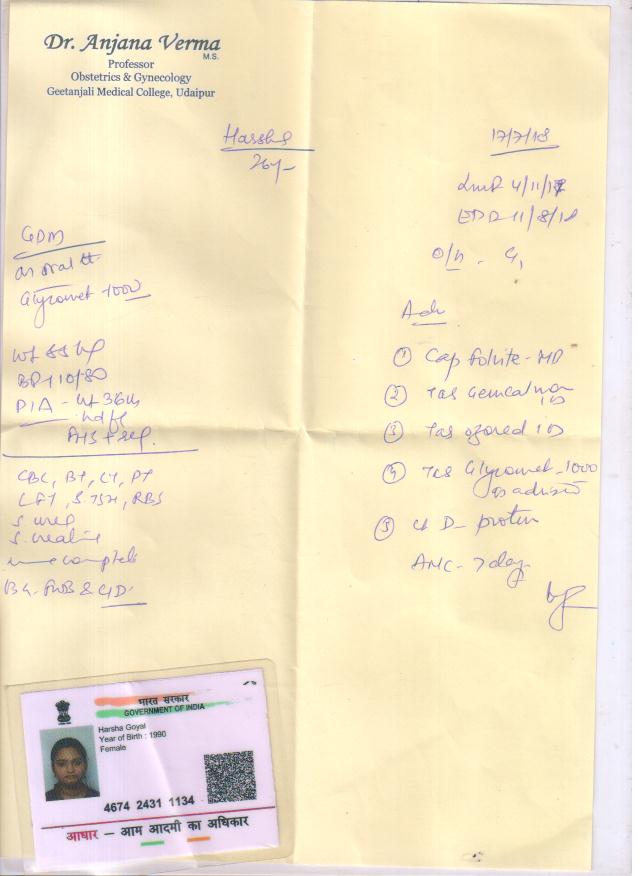 Dr. Anjana Verma
M.S.
Professor
Obstetrics & Gynecology
Geetanjali Medical College, Udaipur
Harsha
26y-
17/7/18
LMP 4/11/17
EDD 11/8/18
O/H - G1
GDM
on oral tt
Glycomet 1000
Wt 55 kg
BP 110/80
P/A - Ut 36 wk
FHS + reg.
CBC, BT, CT, PT
LFT, S. TSH, RBS
S. urea
S. creatine
urine complete
Adv
① Cap Folvite-MD
② Tab Gemcal
③ Tab ozored 1 OD
④ Tab Glycomet-1000
as advised
⑤ D- protein
ANC - 7 day
भारत सरकार
GOVERNMENT OF INDIA
Harsha Goyal
Year of Birth : 1990
Female
4674 2431 1134
आधार – आम आदमी का अधिकार